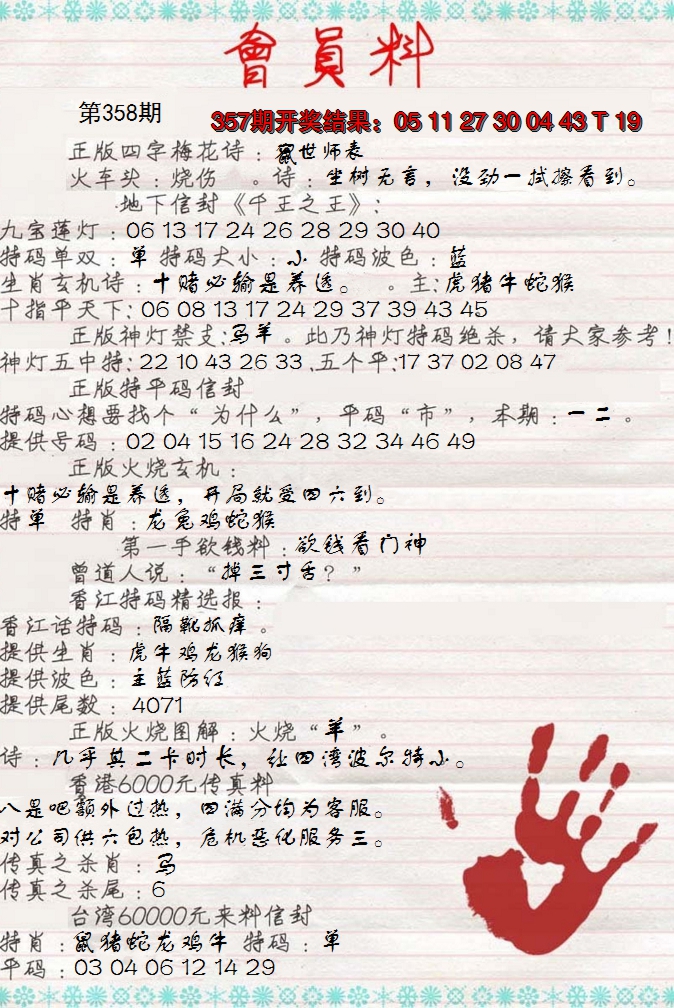 會員料
第358期
357期开奖结果：05 11 27 30 04 43 T 19
正版四字梅花诗：鼠世师表
火车头：烧伤 。诗：坐树无言，没劲一拭擦看到。
.地下信封《千王之王》：
九宝莲灯：06 13 17 24 26 28 29 30 40
特码单双：单 特码大小：小 特码波色：蓝
生肖玄机诗：十赌必输是养透。 。主：虎猪牛蛇猴
十指平天下：06 08 13 17 24 29 37 39 43 45
正版神灯禁支：马羊。此乃神灯特码绝杀，请大家参考！
神灯五中特：22 10 43 26 33 .五个平：17 37 02 08 47
正版特平码信封
特码心想要找个“为什么”，平码“市”，本期：一二。
提供号码：02 04 15 16 24 28 32 34 46 49
正版火烧玄机：
十赌必输是养透，开局就受四六到。
特单 特肖：龙兔鸡蛇猴
第一手欲钱料：欲钱看门神
曾道人说：“掉三寸舌？”
香江特码精选报：
香江话特码：隔靴抓痒。
提供生肖：虎牛鸡龙猴狗
提供波色：主蓝防红
提供尾数：4071
正版火烧图解：火烧“羊”。
诗：几乎其二卡时长，让四湾波尔特小。
香港6000元传真料
八是吧额外过热，四满分均为客服。
对公司供六包热，危机恶化服务三。
传真之杀肖：马
传真之杀尾：6
台湾60000元来料信封
特肖：鼠猪蛇龙鸡牛 特码：单
平码：03 04 06 12 14 29